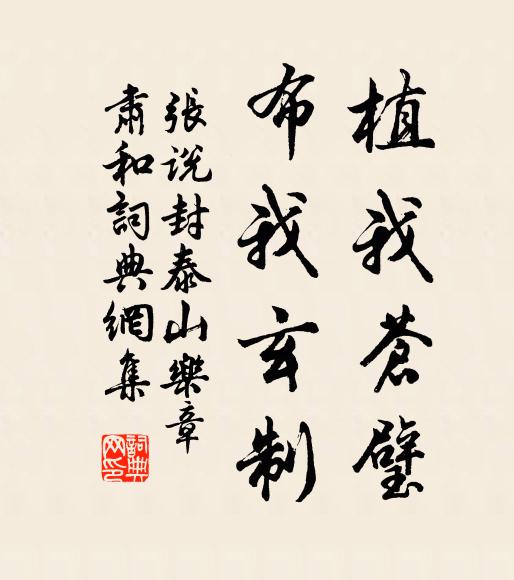 植我蒼璧
布我玄制
張說封泰山樂章
肅和詞典網集
詞典网印